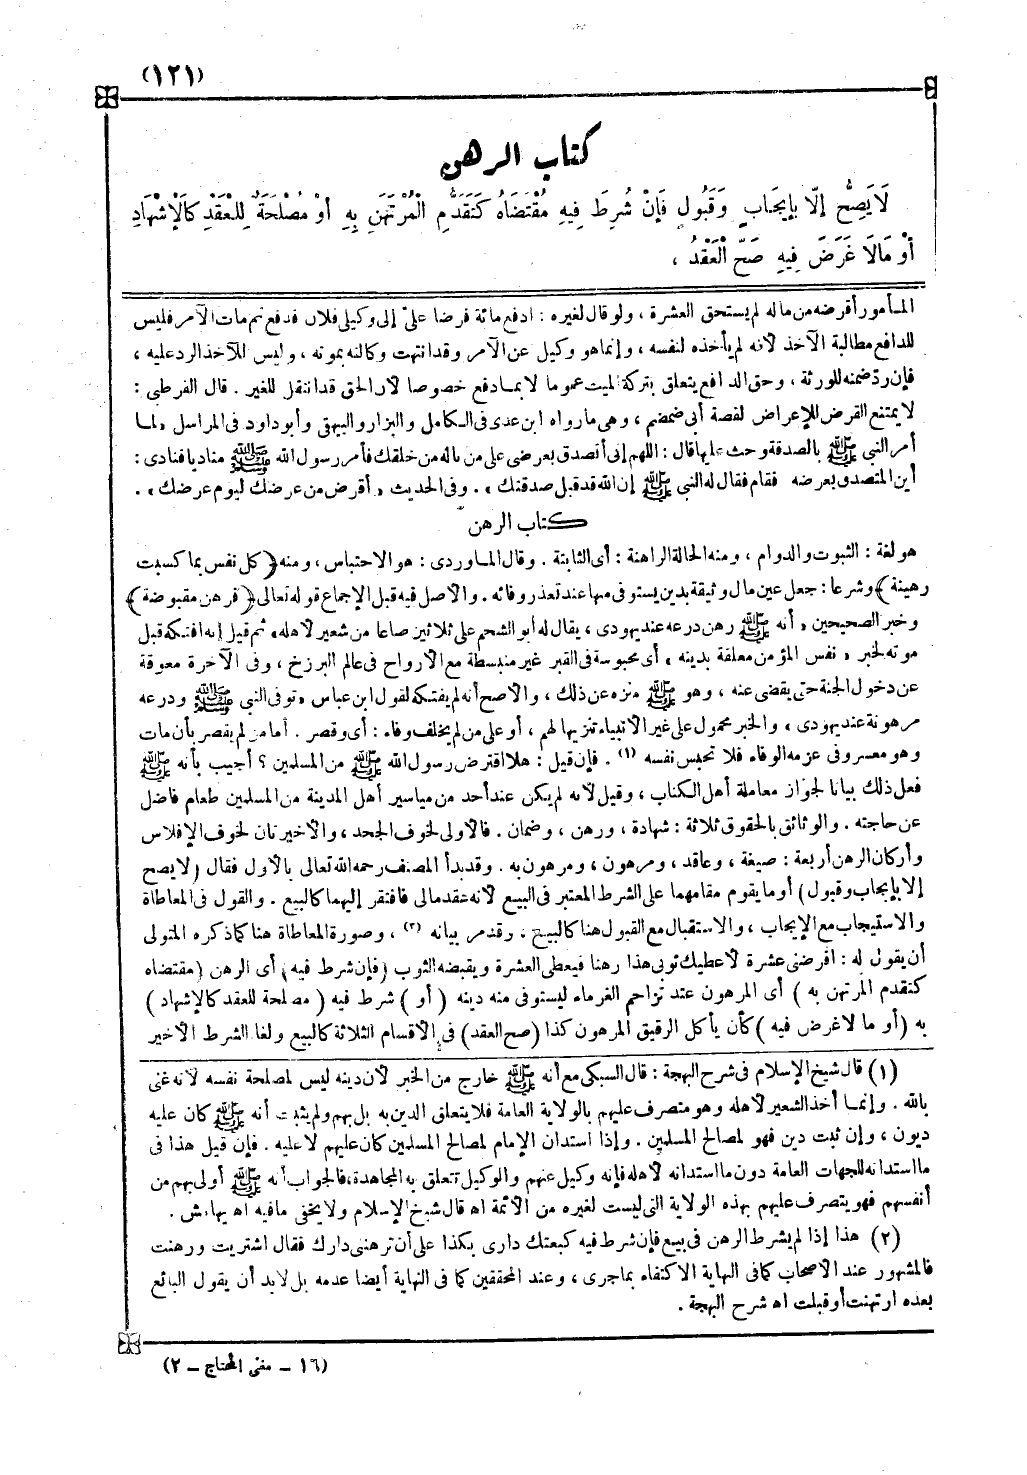 (١٢١)
كتاب الرهن
لَا يَصِحُّ إلَّا بِإِيجَابٍ وَقَبُولٍ فَإِنْ شُرِطَ فِيهِ مُقْتَضَاهُ كَتَقَدُّمِ الْمُرْتَهِنِ بِهِ أَوْ مَصْلَحَةٌ لِلْعَقْدِ كَالْإِشْهَادِ
أَوْ مَالَا غَرَضَ فِيهِ صَحَّ الْعَقْدُ ،
المأمور أقرضه من ماله لم يستحق العشرة ، ولو قال لغيره : ادفع مائة قرضا علىّ إلى وكيلى فلان فدفع ثم مات الآمر فليس
للدافع مطالبة الآخذ لأنه لم يأخذه لنفسه ، وإنما هو وكيل عن الآمر وقد انتهت وكالته بموته ، وليس للآخذ الرد عليه ،
فإن ردّ ضمنه للورثة ، وحق الدافع يتعلق بتركة الميت عموما لا بما دفع خصوصا لأن الحق قد انتقل للغير . قال القرطبى :
لا يمتنع القرض للإعراض لقصة أبى ضمضم ، وهى مارواه ابن عدى فى الكامل والبزار والبيهقى وأبو داود فى المراسل ، لما
أمر النبى ﷺ بالصدقة وحث عليها قال : اللهم إنى أتصدق بعرضى على من ناله من خلقك فأمر رسول الله ﷺ مناديا فنادى :
أين المتصدق بعرضه فقام فقال له النبى ﷺ إن الله قد قبل صدقتك » . وفى الحديث « أقرض من عرضك ليوم عرضك » .
كتاب الرهن
هو لغة : الثبوت والدوام ، ومنه الحالة الراهنة : أى الثابتة . وقال الماوردى : هو الاحتباس ، ومنه ﴿ كل نفس بما كسبت
رهينة ﴾ وشرعا : جعل عين مال وثيقة بدين يستوفى منها عند تعذر وفائه . والأصل فيه قبل الإجماع قوله تعالى ﴿ فرهن مقبوضة ﴾
وخبر الصحيحين « أنه ﷺ رهن درعه عند يهودى ، يقال له أبو الشحم على ثلاثين صاعا من شعير لأهله » ثم قيل إنه افتكه قبل
موته لخبر « نفس المؤمن معلقة بدينه » أى محبوسة فى القبر غير منبسطة مع الأرواح فى عالم البرزخ ، وفى الآخرة معوقة
عن دخول الجنة حتى يقضى عنه ، وهو ﷺ منزه عن ذلك ، والأصح أنه لم يفتكه لقول ابن عباس « توفى النبى ﷺ ودرعه
مرهونة عند يهودى » والخبر محمول على غير الأنبياء تنزيها لهم ، أو على من لم يخلف وفاء : أى وقصر . أما من لم يقصر بأن مات
وهو معسر وفى عزمه الوفاء فلا تحبس نفسه (١) . فإن قيل : هلا اقترض رسول الله ﷺ من المسلمين ؟ أجيب بأنه ﷺ
فعل ذلك بيانا لجواز معاملة أهل الكتاب ، وقيل لأنه لم يكن عند أحد من مياسير أهل المدينة من المسلمين طعام فاضل
عن حاجته . والوثائق بالحقوق ثلاثة : شهادة ، ورهن ، وضمان . فالأولى لخوف الجحد ، والأخيرتان لخوف الإفلاس
وأركان الرهن أربعة : صيغة ، وعاقد ، ومرهون ، ومرهون به . وقد بدأ المصنف رحمه الله تعالى بالأول فقال (لا يصح
إلا بإيجاب وقبول) أو ما يقوم مقامهما على الشرط المعتبر فى البيع لأنه عقد مالى فافتقر إليهما كالبيع . والقول فى المعاطاة
والاستيجاب مع الإيجاب ، والاستقبال مع القبول هنا كالبيع ، وقد مر بيانه (٢) ، وصورة المعاطاة هنا كما ذكره المتولى
أن يقول له : أقرضنى عشرة لأعطيك ثوبى هذا رهنا فيعطى العشرة ويقبضه الثوب (فإن شرط فيه) أى الرهن (مقتضاه
كتقدم المرتهن به ) أى المرهون عند تزاحم الغرماء ليستوفى منه دينه ( أو ) شرط فيه ( مصلحة للعقد كالإشهاد )
به ( أو ما لا غرض فيه ) كأن يأكل الرقيق المرهون كذا (صح العقد) فى الأقسام الثلاثة كالبيع ولغا الشرط الأخير
(١) قال شيخ الإسلام فى شرح البهجة : قال السبكى مع أنه ﷺ خارج من الخبر لأن دينه ليس لمصلحة نفسه لأنه غنى
بالله . وإنما أخذ الشعير لأهله وهو متصرف عليهم بالولاية العامة فلا يتعلق الدين به بل بهم ولم يثبت أنه ﷺ كان عليه
ديون ، وإن ثبت دين فهو لمصالح المسلمين . وإذا استدان الإمام لمصالح المسلمين كان عليهم لا عليه . فإن قيل هذا فى
ما استدانه للجهات العامة دون ما استدانه لأهله فإنه وكيل عنهم والوكيل تتعلق به المجاهدة، فالجواب أنه ﷺ أولى بهم من
أنفسهم فهو يتصرف عليهم بهذه الولاية التى ليست لغيره من الأئمة اه قال شيخ الإسلام ولا يخفى مافيه اه بهامش .
(٢) هذا إذا لم يشرط الرهن فى بيع فإن شرط فيه كبعتك دارى بكذا على أن ترهننى دارك فقال اشتريت ورهنت
فالمشهور عند الأصحاب كما فى النهاية الاكتفاء بما جرى ، وعند المحققين كما فى النهاية أيضا عدمه بل لابد أن يقول البائع
بعده ارتهنت أو قبلت اه شرح البهجة .
(١٦ - مغنى المحتاج - ٢)